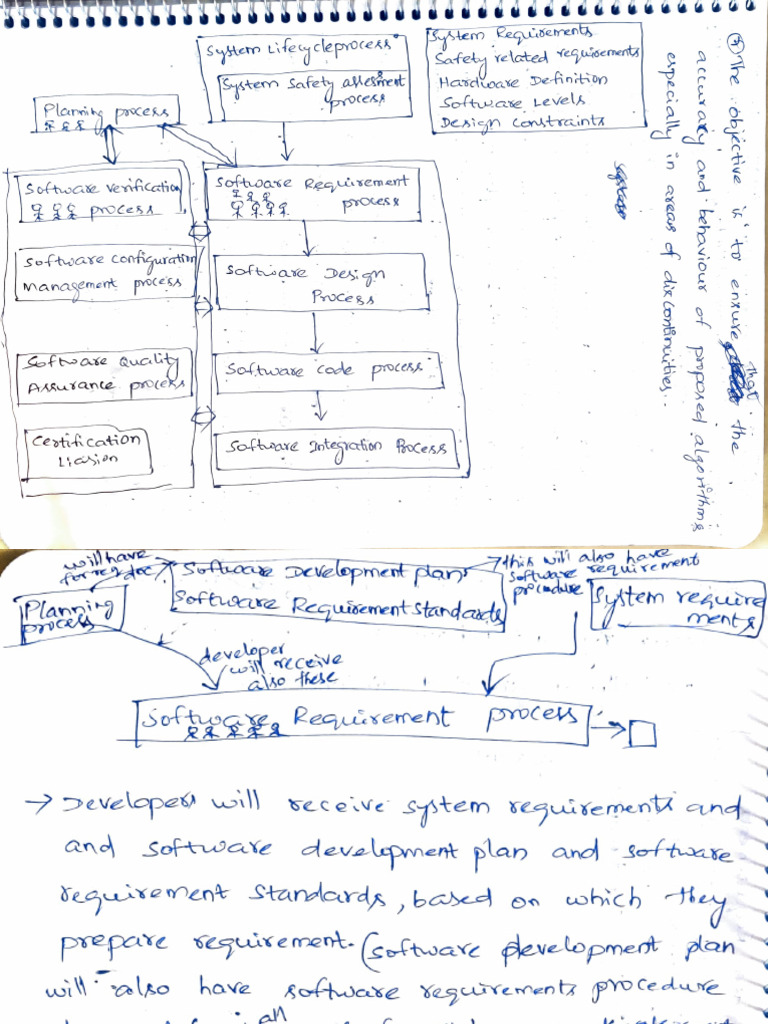 System Lifecycle process
System Safety assesment
process
System Requirements
Safety related requirements
Hardware Definition
Software Levels
Design constraints
Planning process
Software verification
process
Software configuration
Management process
Software Quality
Assurance process
Certification
Liasion
Software Requirement
process
Software Design
Process
Software code process
Software Integration Process
④ The objective is to ensure that the
accuracy and behaviour of proposed algorithms
especially in areas of discontinuities..
will have
for req doc
Planning
process
Software Development plans
Software Requirement standards
this will also have
software requirement
procedure
System require
ments
developer
will receive
also these
Software Requirement process
→ Developers will receive system requirements and
and software development plan and software
requirement standards, based on which they
prepare requirement. (software development plan
will also have software requirements procedure
an